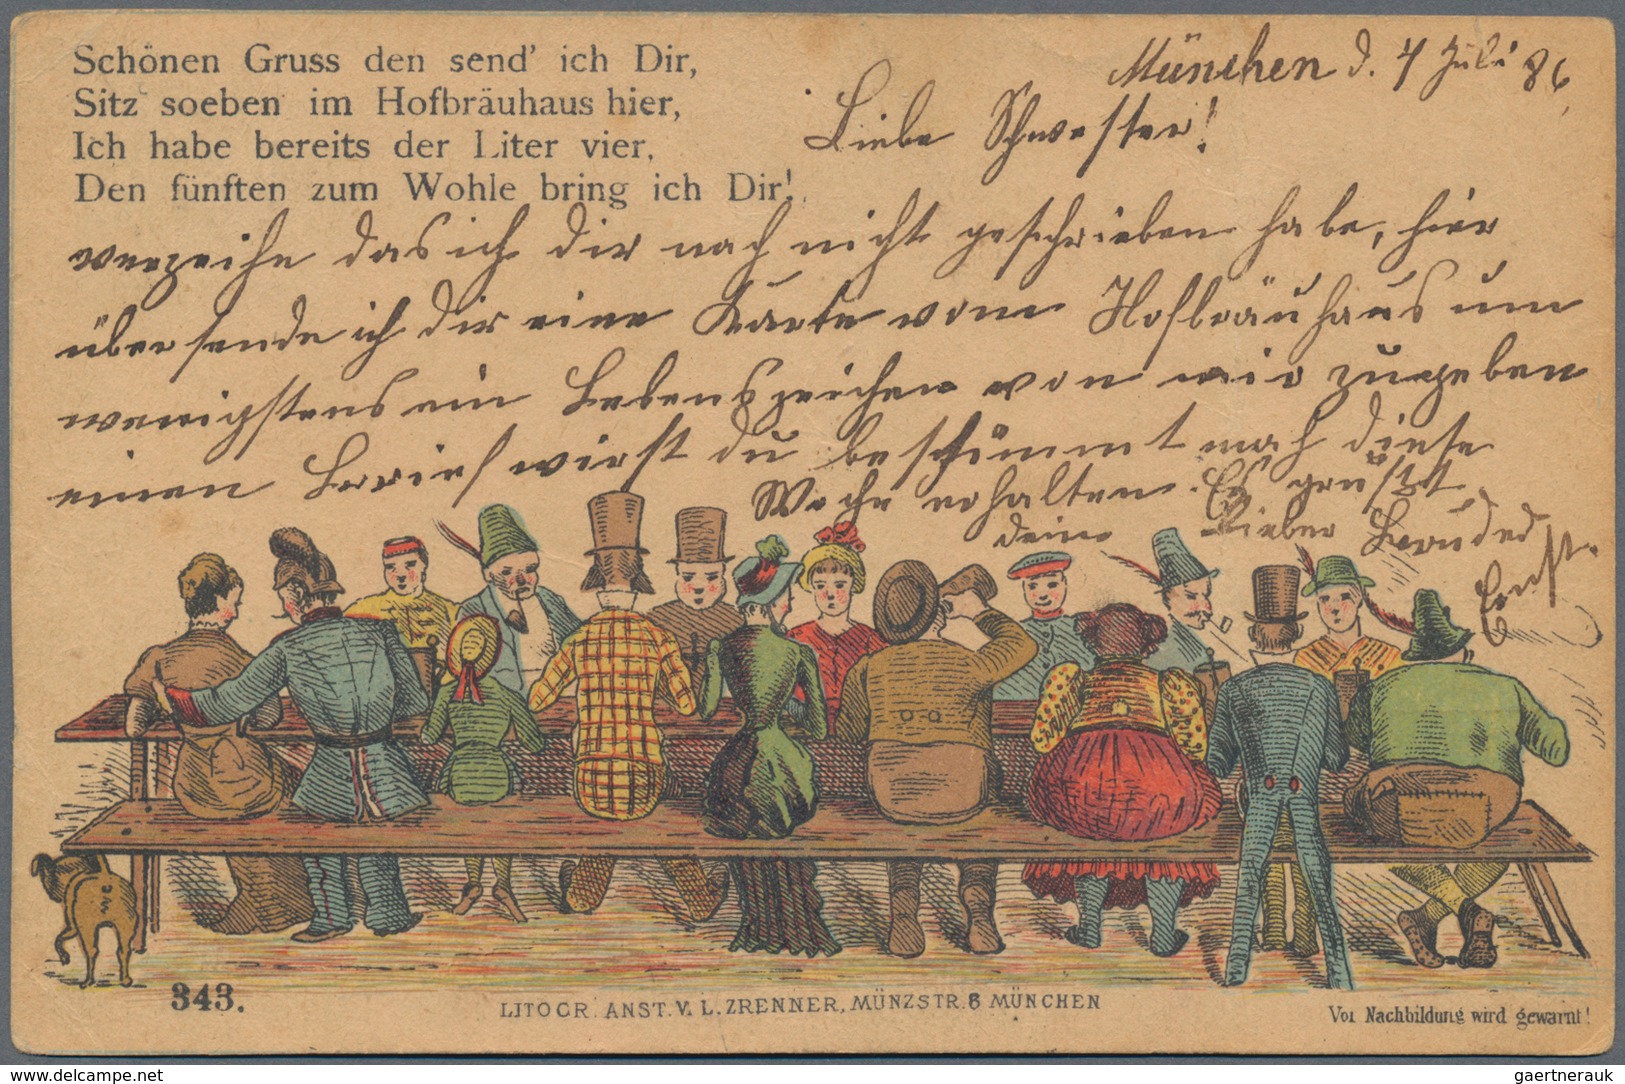 Schönen Gruss den send' ich Dir,
Sitz soeben im Hofbräuhaus hier,
Ich habe bereits der Liter vier,
Den fünften zum Wohle bring ich Dir!
München d. 4 Juli 86
Liebe Schwester!
verzeihe das ich dir noch nicht geschrieben habe, hier
übersende ich dir eine Karte vom Hofbräuhaus um
wenigstens ein Lebenszeichen von mir zugeben
einen Brief wirst du bestimmt noch diese
Woche erhalten. Es grüßt
deine lieber Bruder
Ernst.
343.
LITOGR. ANST. V. L. ZRENNER, MÜNZSTR. 6 MÜNCHEN
Vor Nachbildung wird gewarnt!
www.delcampe.net
gaertnerauk